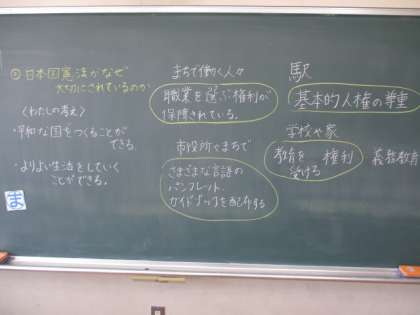 ②日本国憲法がなぜ
大切にされているのか
〈わたしの考え〉
・平和な国をつくることが
できる。
・よりよい生活をしていく
ことができる。
ま
まちで働く人々
職業を選ぶ権利が
保障されている。
市役所やまちで
さまざまな言語の
パンフレット、
を配布する
駅
基本的人権の尊重
学校や家
教育を 権利
受ける
義務教育